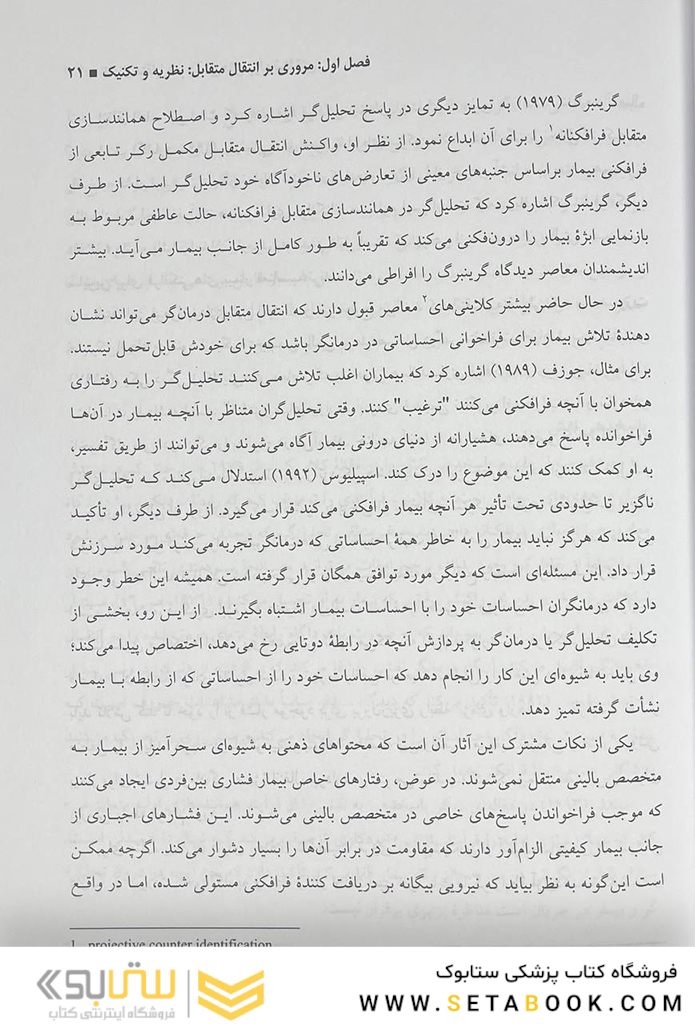 فصل اول: مروری بر انتقال متقابل: نظریه و تکنیک ■ ۲۱
گرینبرگ (۱۹۷۹) به تمایز دیگری در پاسخ تحلیل‌گر اشاره کرد و اصطلاح همانندسازی
متقابل فرافکنانه۱ را برای آن ابداع نمود. از نظر او، واکنش انتقال متقابل مکمل رکر تابعی از
فرافکنی بیمار براساس جنبه‌های معینی از تعارض‌های ناخودآگاه خود تحلیل‌گر است. از طرف
دیگر، گرینبرگ اشاره کرد که تحلیل‌گر در همانندسازی متقابل فرافکنانه، حالت عاطفی مربوط به
بازنمایی ابژهٔ بیمار را درون‌فکنی می‌کند که تقریباً به طور کامل از جانب بیمار می‌آید. بیشتر
اندیشمندان معاصر دیدگاه گرینبرگ را افراطی می‌دانند.
در حال حاضر بیشتر کلاینی‌های۲ معاصر قبول دارند که انتقال متقابل درمان‌گر می‌تواند نشان
دهندهٔ تلاش بیمار برای فراخوانی احساساتی در درمانگر باشد که برای خودش قابل‌تحمل نیستند.
برای مثال، جوزف (۱۹۸۹) اشاره کرد که بیماران اغلب تلاش می‌کنند تحلیل‌گر را به رفتاری
همخوان با آنچه فرافکنی می‌کنند "ترغیب" کنند. وقتی تحلیل‌گران متناظر با آنچه بیمار در آن‌ها
فراخوانده پاسخ می‌دهند، هشیارانه از دنیای درونی بیمار آگاه می‌شوند و می‌توانند از طریق تفسیر،
به او کمک کنند که این موضوع را درک کند. اسپیلیوس (۱۹۹۲) استدلال می‌کند که تحلیل‌گر
ناگزیر تا حدودی تحت تأثیر هر آنچه بیمار فرافکنی می‌کند قرار می‌گیرد. از طرف دیگر، او تأکید
می‌کند که هرگز نباید بیمار را به خاطر همهٔ احساساتی که درمانگر تجربه می‌کند مورد سرزنش
قرار داد. این مسئله‌ای است که دیگر مورد توافق همگان قرار گرفته است. همیشه این خطر وجود
دارد که درمانگران احساسات خود را با احساسات بیمار اشتباه بگیرند. از این رو، بخشی از
تکلیف تحلیل‌گر یا درمان‌گر به پردازش آنچه در رابطهٔ دوتایی رخ می‌دهد، اختصاص پیدا می‌کند؛
وی باید به شیوه‌ای این کار را انجام دهد که احساسات خود را از احساساتی که از رابطه با بیمار
نشأت گرفته تمیز دهد.
یکی از نکات مشترک این آثار آن است که محتواهای ذهنی به شیوه‌ای سحرآمیز از بیمار به
متخصص بالینی منتقل نمی‌شوند. در عوض، رفتارهای خاص بیمار فشاری بین‌فردی ایجاد می‌کنند
که موجب فراخواندن پاسخ‌های خاصی در متخصص بالینی می‌شوند. این فشارهای اجباری از
جانب بیمار کیفیتی الزام‌آور دارند که مقاومت در برابر آن‌ها را بسیار دشوار می‌کند. اگرچه ممکن
است این‌گونه به نظر بیاید که نیرویی بیگانه بر دریافت کنندهٔ فرافکنی مستولی شده، اما در واقع
1. projective counter identification
فروشگاه کتاب پزشکی ستابوک
WWW.SETABOOK.COM
ستابوک
فروشگاه اینترنتی کتاب